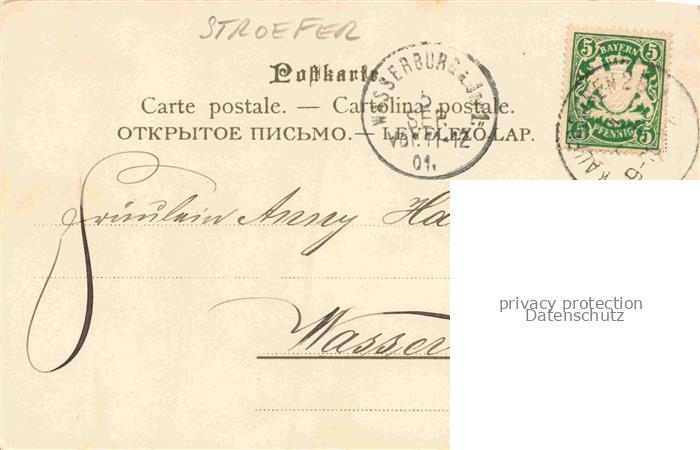 STROEFER
Postkarte.
Carte postale. — Cartolina postale.
ОТКРЫТОЕ ПИСЬМО. — LEVELEZŐ-LAP.
WASSERBURG a. Inn 1.
5
SEP.
Vor. 11-12
01.
5 BAYERN 5
5 PFENNIG 5
Fräulein Anny Ha
Wasser
privacy protection
Datenschutz